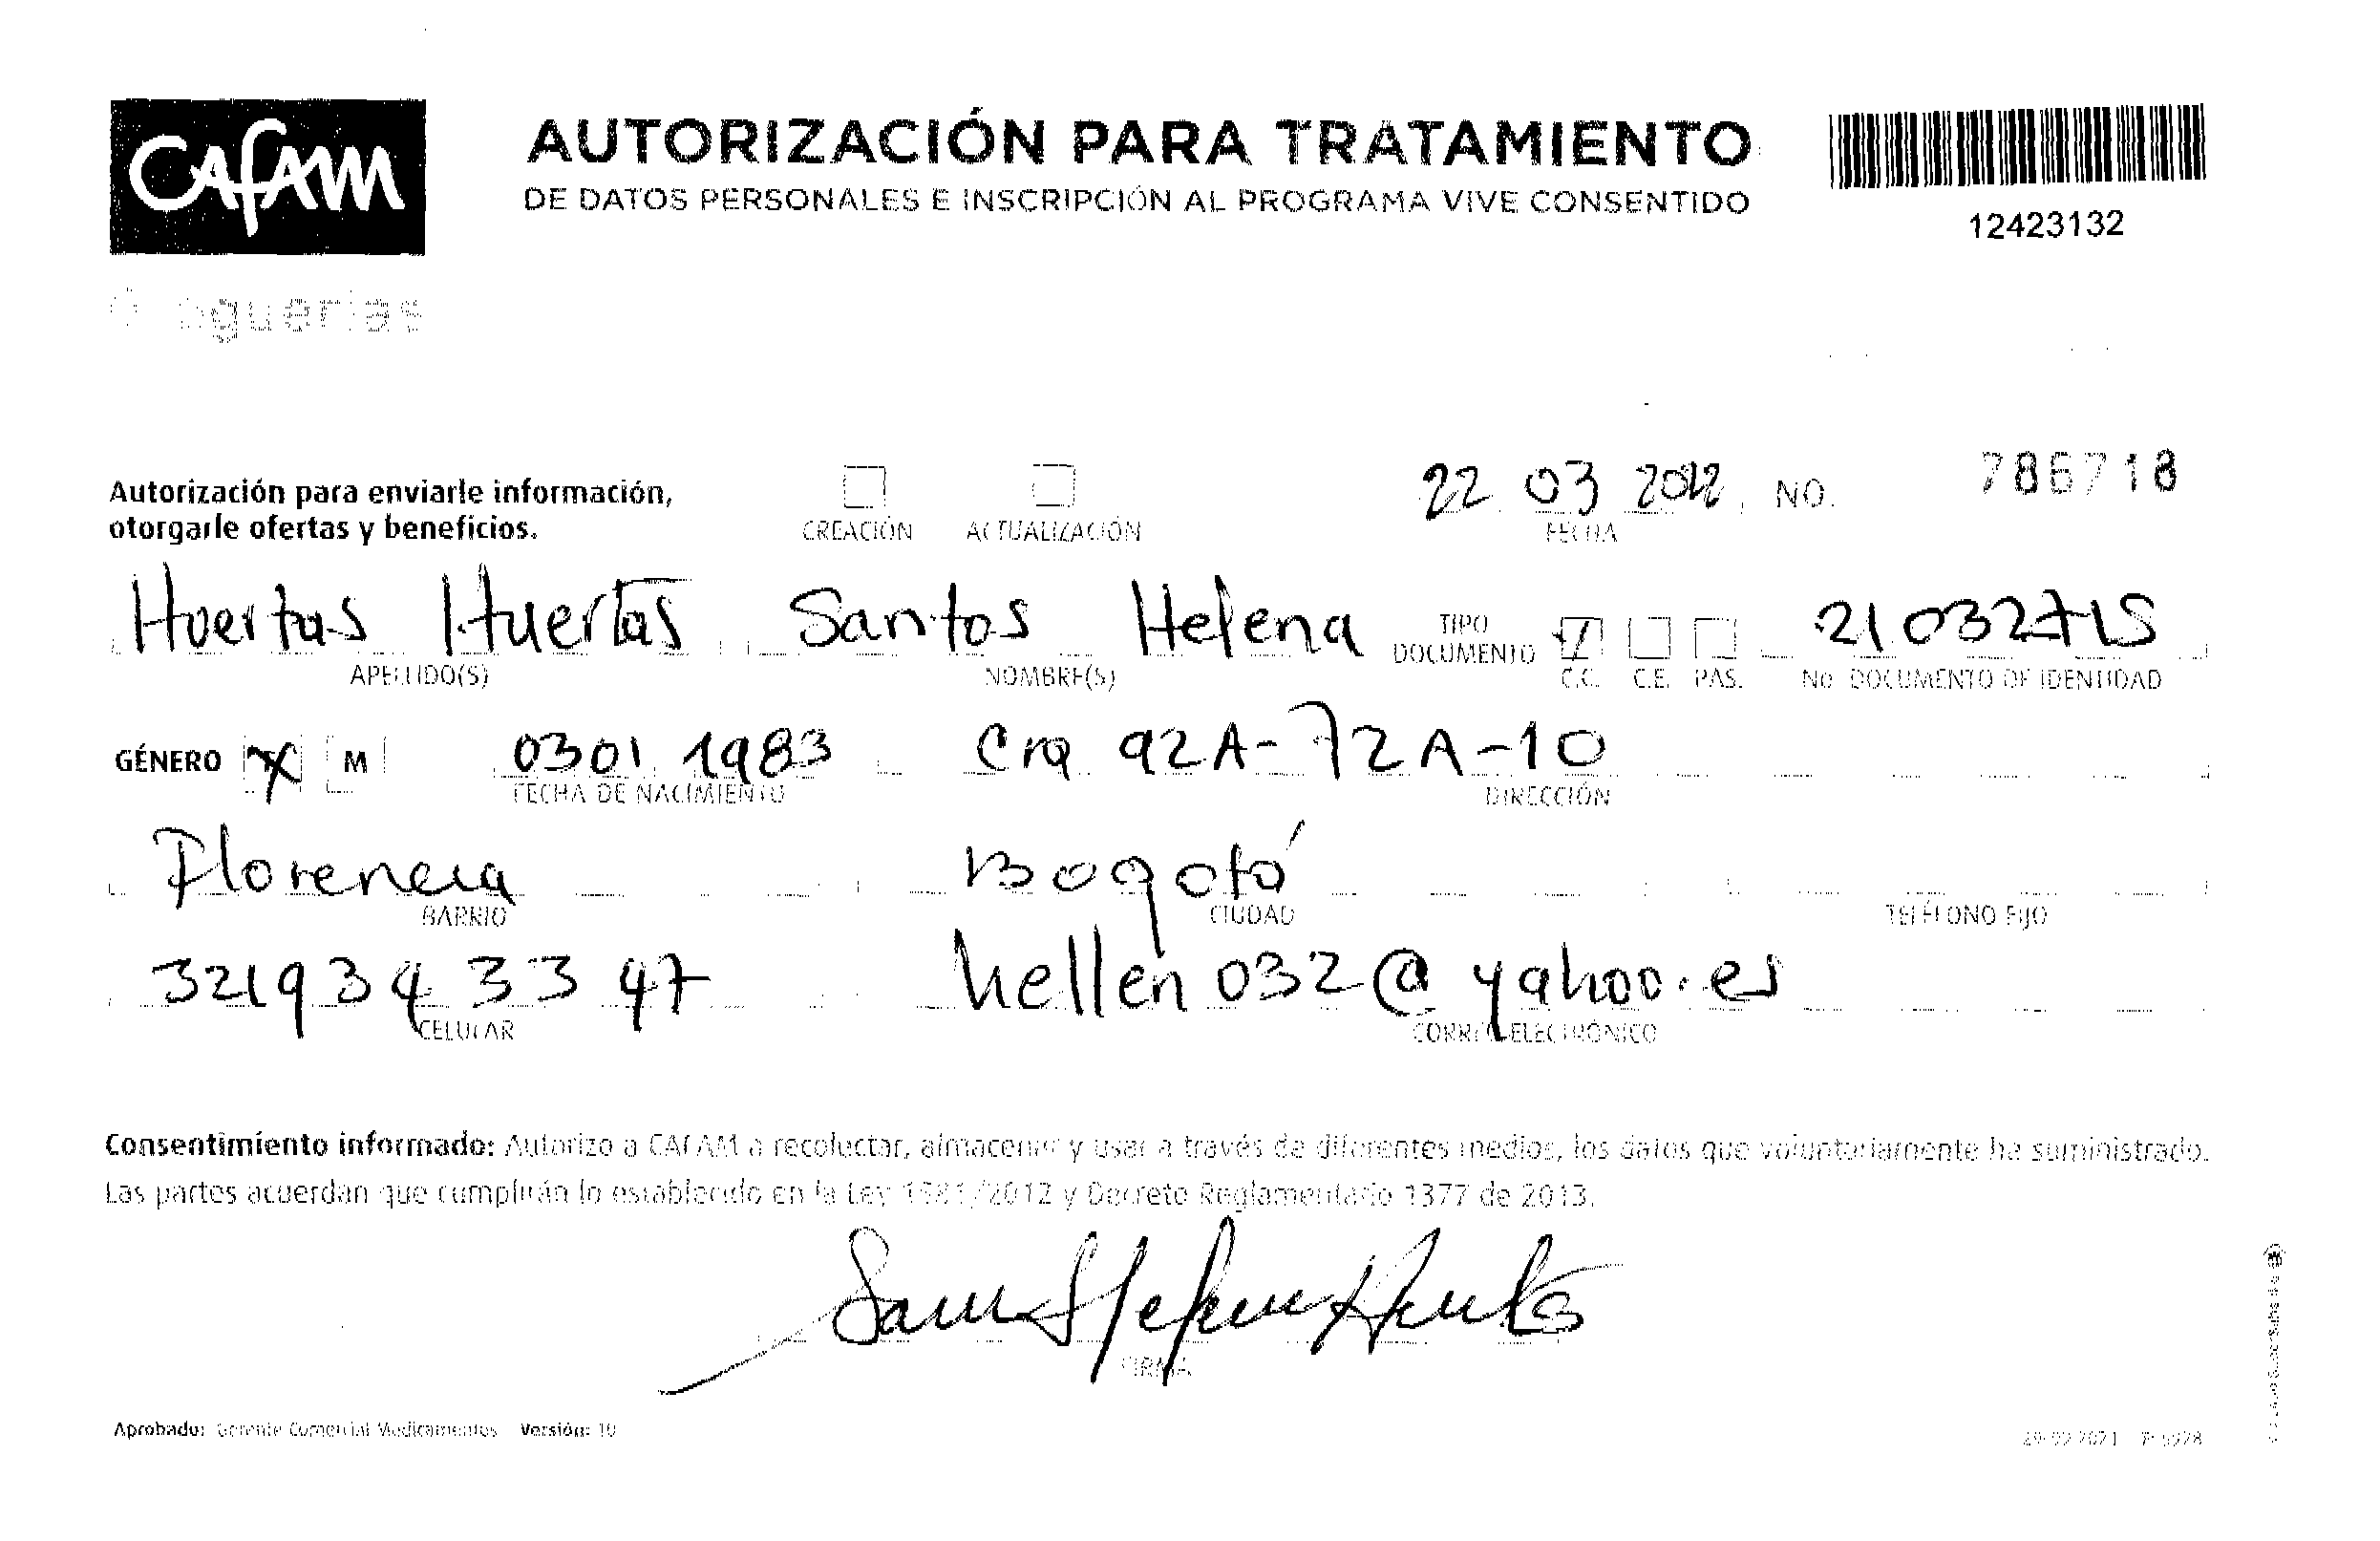 CAFAM
AUTORIZACIÓN PARA TRATAMIENTO
DE DATOS PERSONALES E INSCRIPCIÓN AL PROGRAMA VIVE CONSENTIDO
12423132
Autorización para enviarle información,
otorgarle ofertas y beneficios.
CREACIÓN ACTUALIZACIÓN
22 03 2022 NO. 786718
FECHA
Huertas Huertas Santos Helena TIPO DOCUMENTO 21032715
APELLIDO(S) NOMBRE(S) C.C. C.E. PAS. No. DOCUMENTO DE IDENTIDAD
GÉNERO X M 03 01 1983 Cra 92A-72A-10
FECHA DE NACIMIENTO DIRECCIÓN
Florencia Bogotá
BARRIO CIUDAD TELÉFONO FIJO
321 934 33 47 hellen032@yahoo.es
CELULAR CORREO ELECTRÓNICO
Consentimiento informado: Autorizo a CAFAM a recolectar, almacenar y usar a través de diferentes medios, los datos que voluntariamente he suministrado.
Las partes acuerdan que cumplirán lo establecido en la Ley 1581/2012 y Decreto Reglamentario 1377 de 2013.
FIRMA
Aprobado: Gerente Comercial Medicamentos Versión: 10